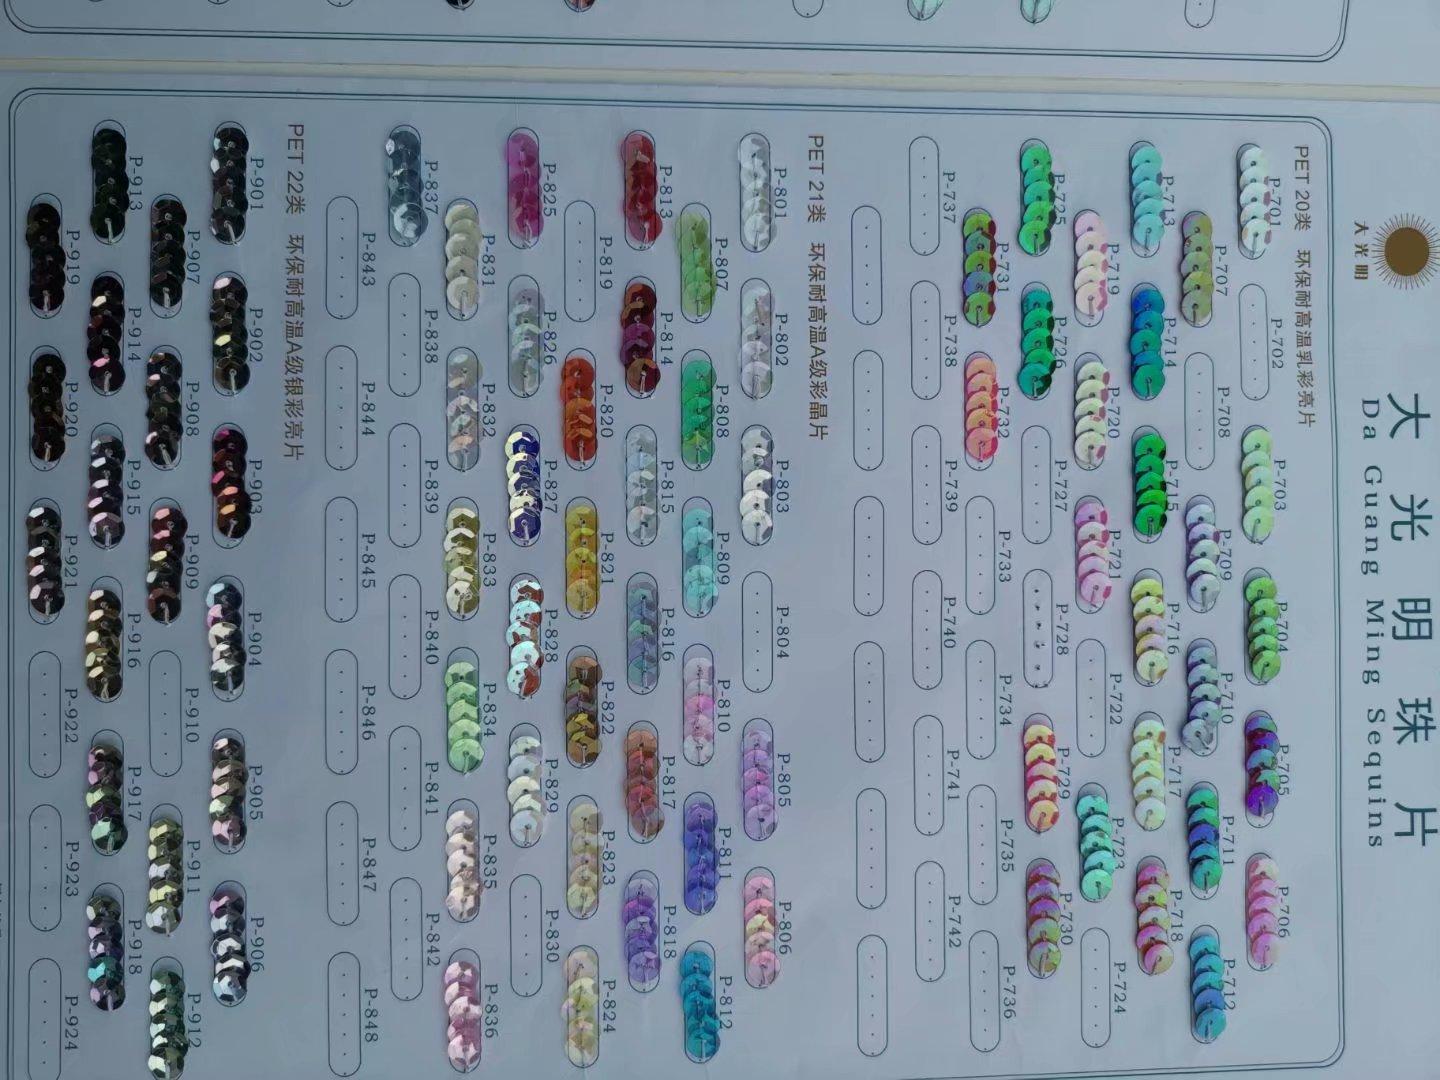 大光明
大光明珠片
Da Guang Ming Sequins
PET 20类 环保耐高温乳彩亮片
P-701 P-702 P-703 P-704 P-705 P-706
P-707 P-708 P-709 P-710 P-711 P-712
P-713 P-714 P-715 P-716 P-717 P-718
P-719 P-720 P-721 P-722 P-723 P-724
P-725 P-726 P-727 P-728 P-729 P-730
P-731 P-732 P-733 P-734 P-735 P-736
P-737 P-738 P-739 P-740 P-741 P-742
PET 21类 环保耐高温A级彩晶片
P-801 P-802 P-803 P-804 P-805 P-806
P-807 P-808 P-809 P-810 P-811 P-812
P-813 P-814 P-815 P-816 P-817 P-818
P-819 P-820 P-821 P-822 P-823 P-824
P-825 P-826 P-827 P-828 P-829 P-830
P-831 P-832 P-833 P-834 P-835 P-836
P-837 P-838 P-839 P-840 P-841 P-842
P-843 P-844 P-845 P-846 P-847 P-848
PET 22类 环保耐高温A级银彩亮片
P-901 P-902 P-903 P-904 P-905 P-906
P-907 P-908 P-909 P-910 P-911 P-912
P-913 P-914 P-915 P-916 P-917 P-918
P-919 P-920 P-921 P-922 P-923 P-924